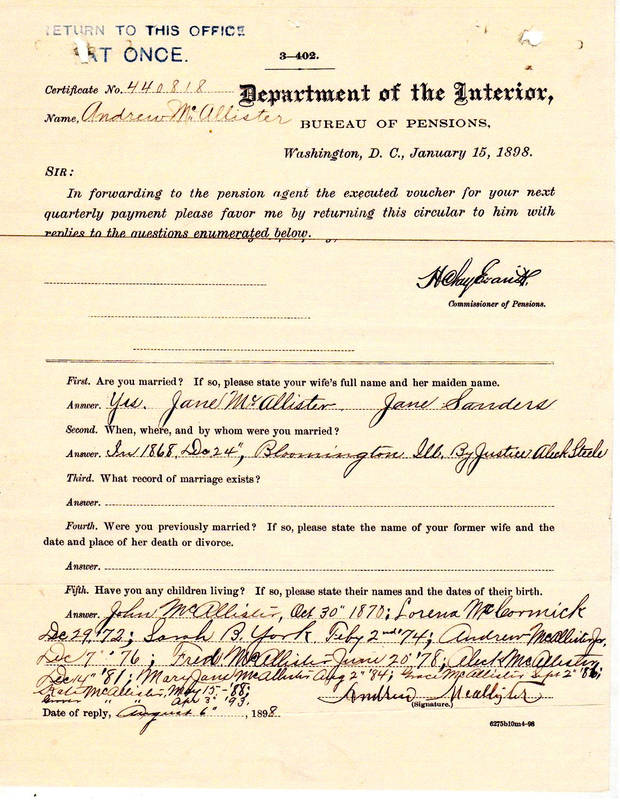 RETURN TO THIS OFFICE
AT ONCE.
3—402.
Certificate No. 440818
Department of the Interior,
Name, Andrew McAllister
BUREAU OF PENSIONS,
Washington, D. C., January 15, 1898.
SIR:
In forwarding to the pension agent the executed voucher for your next
quarterly payment please favor me by returning this circular to him with
replies to the questions enumerated below.
H Clay Evans
Commissioner of Pensions.
First. Are you married? If so, please state your wife's full name and her maiden name.
Answer. Yes. Jane McAllister. Jane Sanders
Second. When, where, and by whom were you married?
Answer. In 1868, Dec 24", Bloomington Ill. By Justice Aleck Steele
Third. What record of marriage exists?
Answer.
Fourth. Were you previously married? If so, please state the name of your former wife and the
date and place of her death or divorce.
Answer.
Fifth. Have you any children living? If so, please state their names and the dates of their birth.
Answer. John McAllister, Oct 30" 1870; Lorena McCormick
Dec 29 '72; Sarah B. York Feby 2nd '74; Andrew McAllister Jr,
Dec 7" '76; Fred McAllister June 20" '78; Aleck McAllister
Dec 14" '81; Mary Jane McAllister Aug 2" '84; Grace McAllister Sept 2" '86;
McAllister, May 15 - '88;
" " Apr 3" '93.
Andrew McAllister
(Signature.)
Date of reply, August 6", 1898
6275b10m4-98